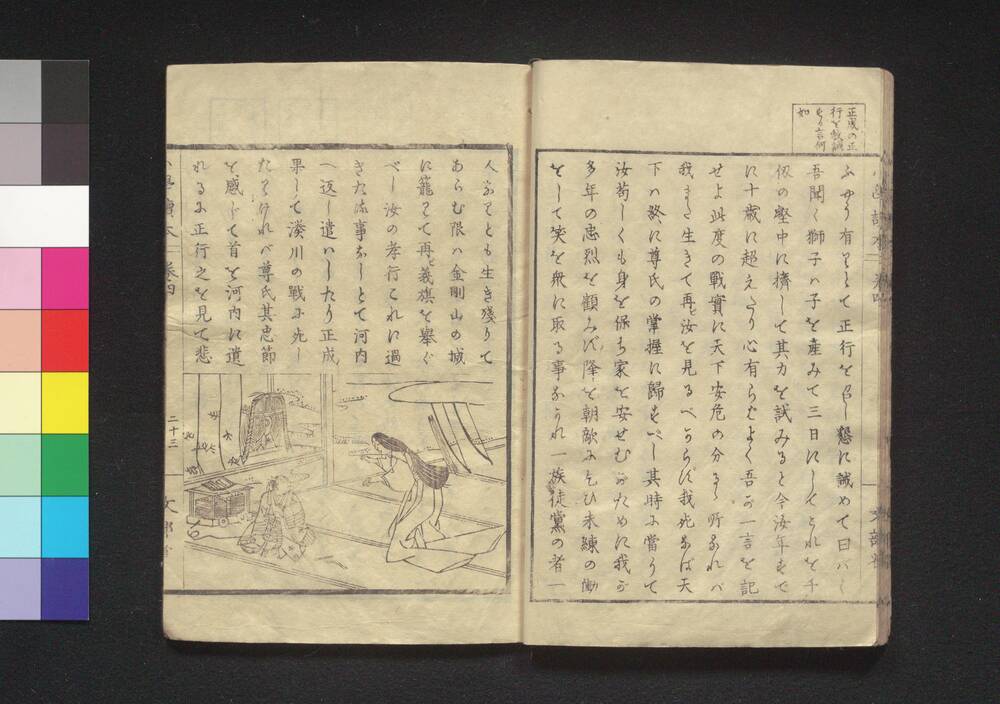 正成の正
行を教誡
せる言何
如
ふやう有りとて正行を召し懇に誡めて曰ハく
吾聞く獅子ハ子を産みて三日にしてこれを千
仭の壑中に擠して其力を試みると今汝年すで
に十歳に超えたり心有らむよく吾が一言を記
せよ此度の戦實に天下安危の分るゝ所なれバ
我また生きて再汝を見るべからず我死なば天
下ハ終に尊氏の掌握に歸すべし其時に當りて
汝苟しくも身を保ち家を安せむがために我が
多年の忠烈を顧みず降を朝敵にこひ未練の働
をして笑を衆に取る事なかれ一族徒黨の者一
人なりとも生き殘りて
あらむ限ハ金剛山の城
に籠りて再義旗を擧ぐ
べし汝の孝行これに過
ぎたる事なしとて河内
へ返し遣ハしたり正成
果して湊川の戰に死し
たりけれバ尊氏其忠節
を感じて首を河内に遺
れるに正行之を見て悲
小學讀本 卷四
二十三
文部省